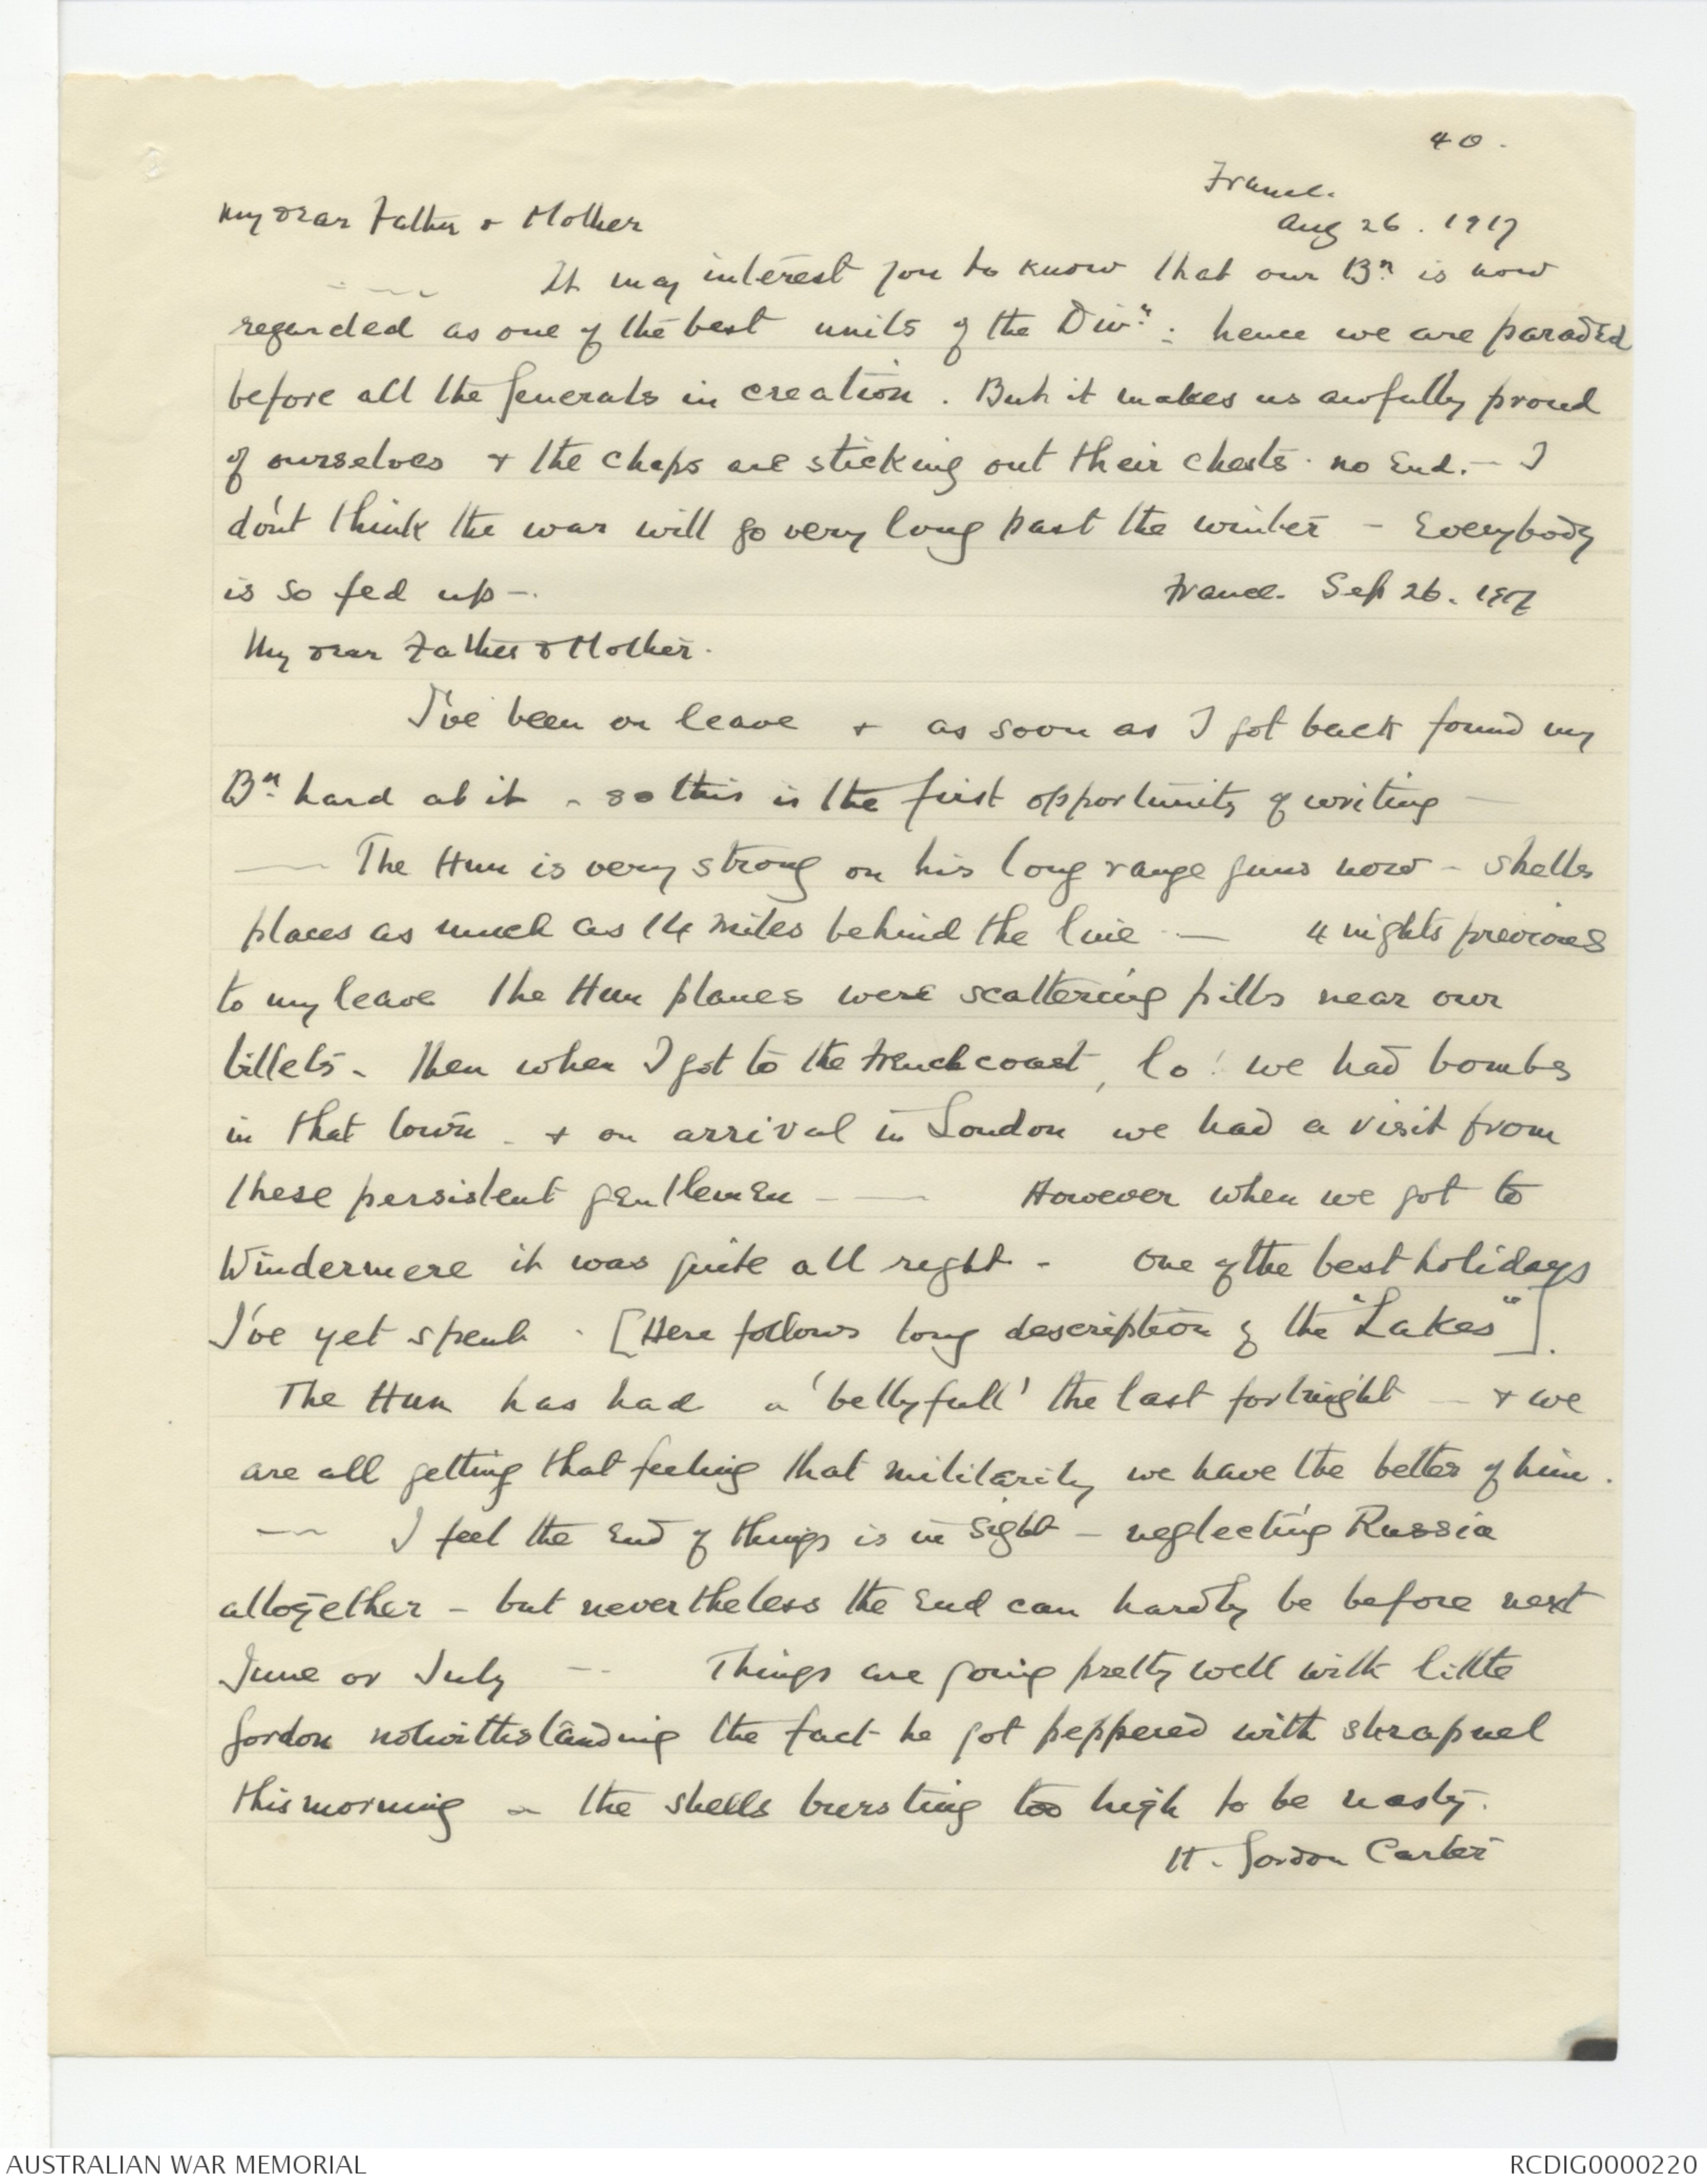 40.
France.
My dear Father & Mother
Aug 26. 1917
It may interest you to know that our Bn. is now
regarded as one of the best units of the Divn: hence we are paraded
before all the Generals in creation. But it makes us awfully proud
of ourselves & the chaps are sticking out their chests no end. — I
don't think the war will go very long past the winter — Everybody
is so fed up —.
France. Sep 26. 1917
My dear Father & Mother.
I've been on leave & as soon as I got back found my
Bn. hard at it - so this is the first opportunity of writing —
— The Hun is very strong on his long range guns now - shells
places as much as 14 miles behind the line — 4 nights previous
to my leave the Hun planes were scattering pills near our
billets - Then when I got to the French coast, lo! we had bombs
in that town - & on arrival in London we had a visit from
these persistent gentlemen — However when we got to
Windermere it was quite all right - One of the best holidays
I've yet spent. [Here follows long description of the "Lakes"].
The Hun has had a 'bellyfull' the last fortnight — & we
are all getting that feeling that militarily we have the better of him.
— I feel the end of things is in sight - neglecting Russia
altogether - but nevertheless the end can hardly be before next
June or July — Things are going pretty well with little
Gordon notwithstanding the fact he got peppered with shrapnel
this morning - the shells bursting too high to be nasty.
H. Gordon Carter
AUSTRALIAN WAR MEMORIAL
RCDIG0000220